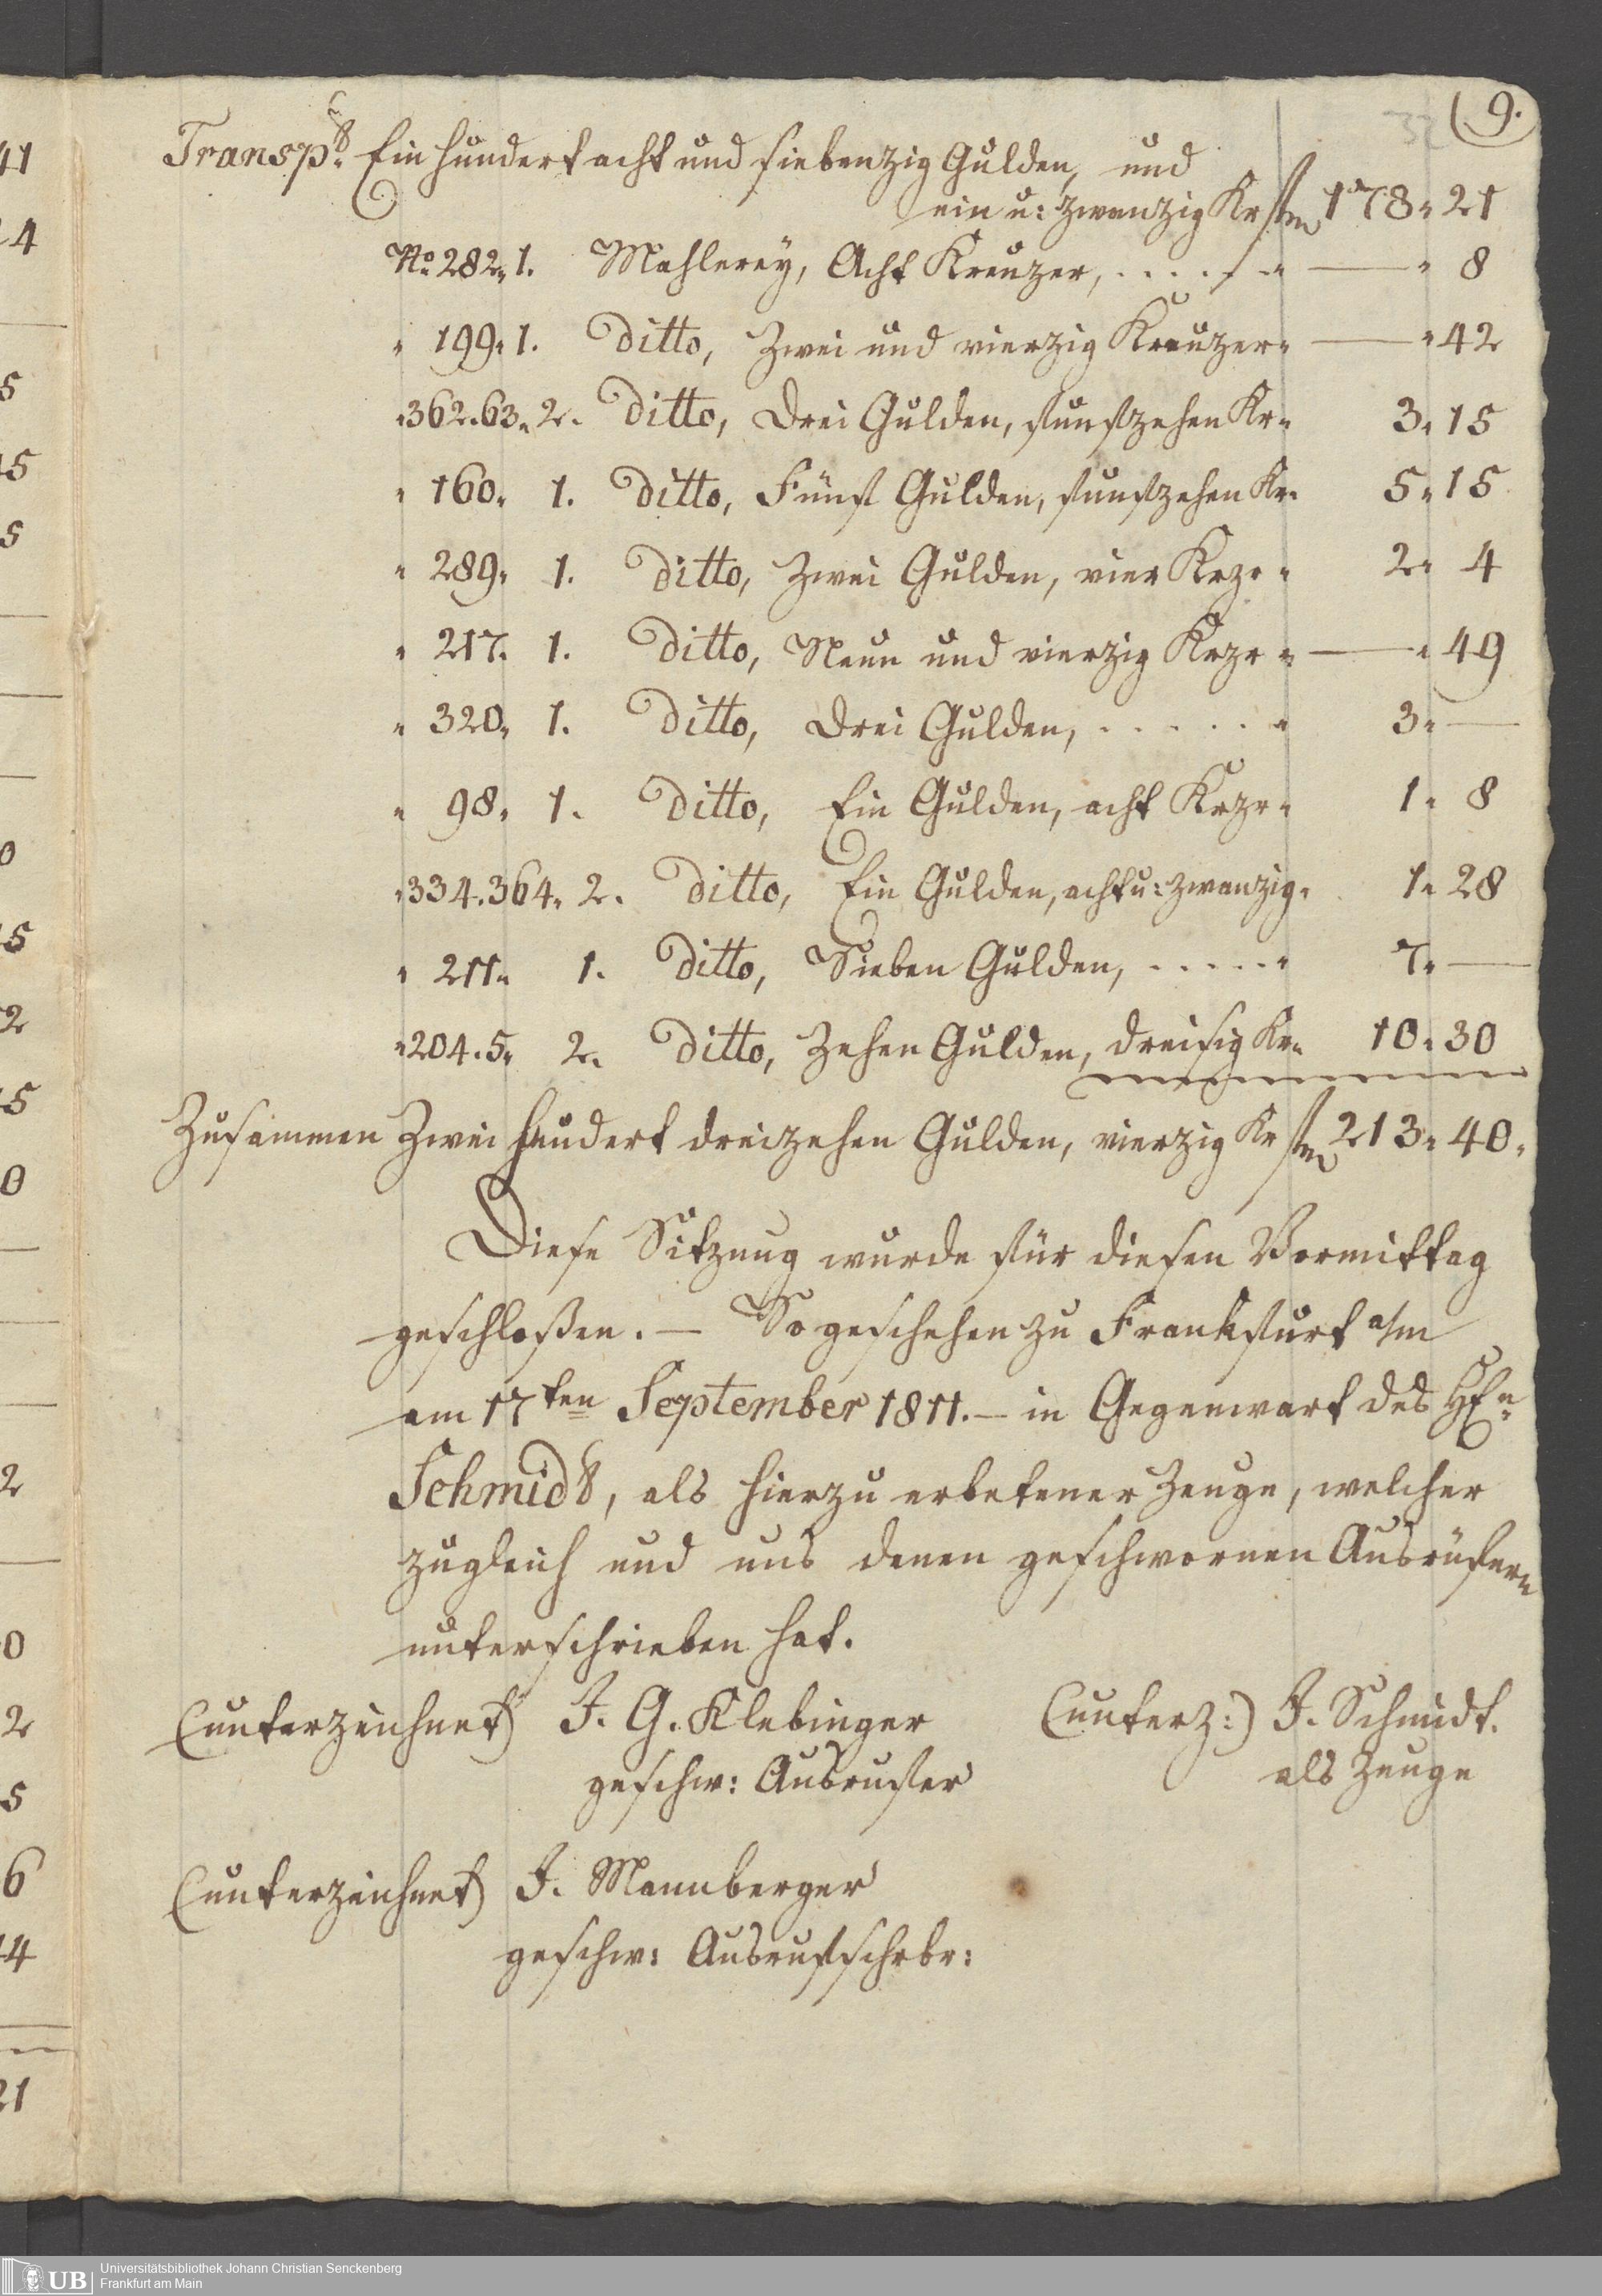 (9.
Transp: Ein hundert acht und siebenzig Gulden, und
ein u: zwanzig Kr fl 178 " 21
No 282 " 1. Mahlerey, Acht Kreuzer, . . . . . " — " 8
" 199 " 1. Ditto, Zwei und vierzig Kreuzer " — " 42
" 362.63 " 2. Ditto, Drei Gulden, funfzehen Kr " 3 " 15
" 160 " 1. Ditto, Fünf Gulden, funfzehen Kr " 5 " 15
" 289 " 1. Ditto, Zwei Gulden, vier Krzr " 2 " 4
" 217 " 1. Ditto, Neun und vierzig Krzr " — " 49
" 320 " 1. Ditto, Drei Gulden, . . . . . " 3 " —
" 98 " 1. Ditto, Ein Gulden, acht Krzr " 1 " 8
" 334.364 " 2. Ditto, Ein Gulden, acht u: zwanzig " 1 " 28
" 211 " 1. Ditto, Sieben Gulden, . . . . . " 7 " —
" 204.5 " 2. Ditto, Zehen Gulden, dreisig Kr " 10 " 30
Zusammen Zwei hundert dreizehen Gulden, vierzig Kr fl 213 " 40 "
Diese Sitzung wurde für diesen Vormittag
geschloßen. — So geschehen zu Frankfurt a/m
am 17ten September 1811. — in Gegenwart des Hrn
Schmidt, als hierzu erbetener Zeuge, welcher
zugleich und uns denen geschwornen Ausrüfern
unterschrieben hat.
(unterzeichnet) J. G. Klebinger (unterz:) J. Schmidt.
geschw: Ausrufer als Zeuge
(unterzeichnet) J. Mannberger
geschw: Ausrufschrbr:
41
4
5
15
5
0
15
2
15
0
2
0
2
5
6
14
21
UB
Universitätsbibliothek Johann Christian Senckenberg
Frankfurt am Main